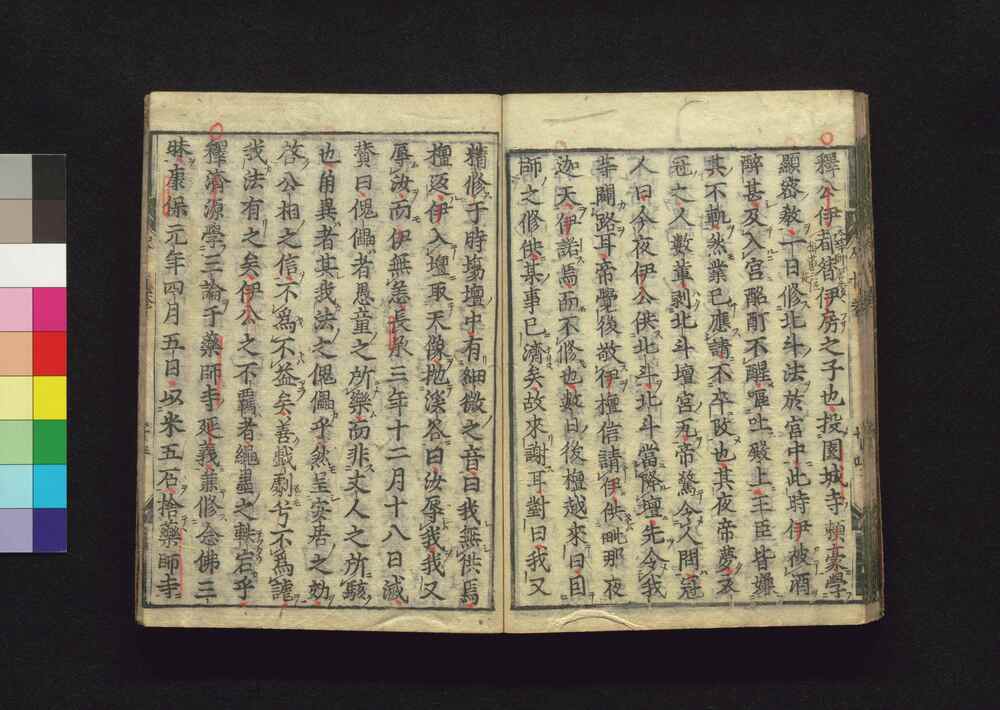 釋公伊者智伊房之子也投園城寺賴豪學
顯密教一日修北斗法於宮中此時伊被酒
醉甚及入宮酩酊不醒嘔吐殿上王臣皆嫌
其不軌然業已應請不卒改也其夜帝夢衣
冠之人數軰到北斗壇宮瓦帝驚令人問冠
人曰今夜伊公供北斗北斗當降壇先令我
等闢路耳帝覺後敬伊檀信請伊供毗那夜
迦天伊諾焉而不修也數日後檀越來曰因
師之修供某事已濟矣故來謝耳對曰我又
精修于時塲壇中有細微之音曰我無供焉
檀返伊入壇取天像抛溪答曰汝辱我我又
辱汝而伊無恙長承三年十二月十八日滅
賛曰傀儡者愚童之所樂而非丈人之所駭
也角異者其我法之傀儡乎然呈安居之効
啓公相之信不爲不益矣善戲劇兮不爲謔
我法有之矣伊公之不覊者繩墨之軼宕乎
釋濟源學三論于藥師寺延義兼修念佛三
昧康保元年四月五日以米五石捨藥師寺